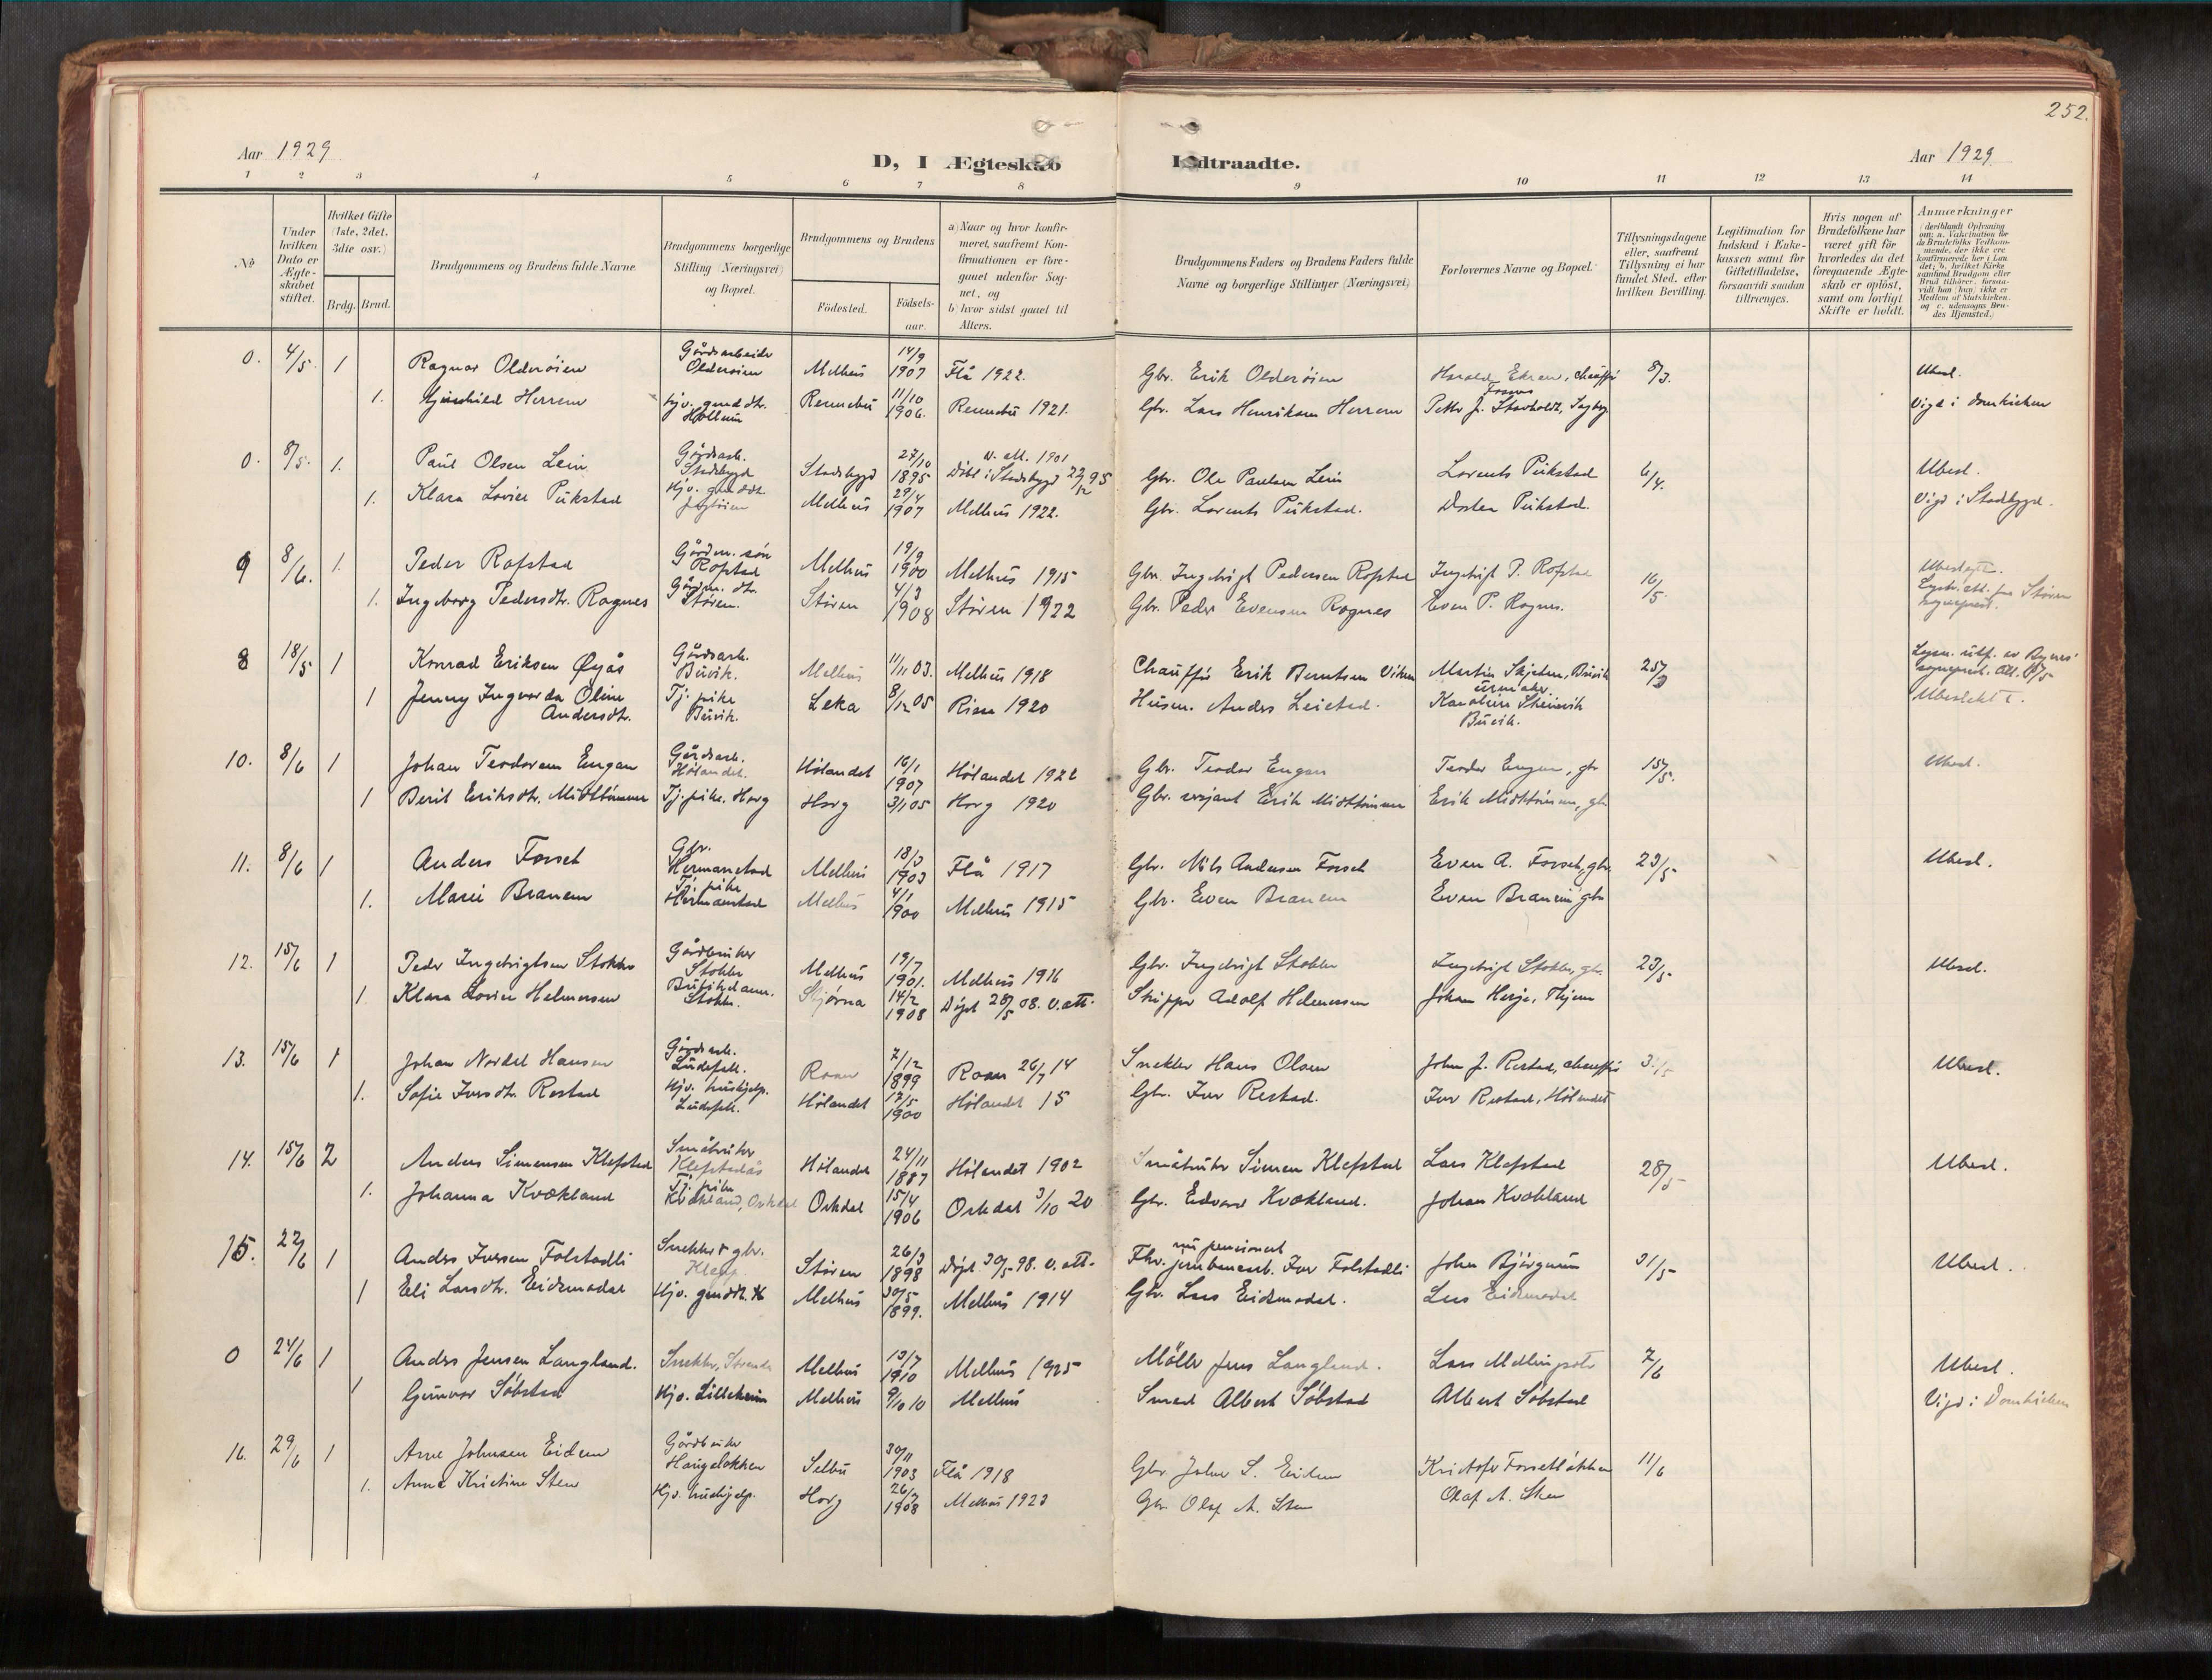 252.
Aar 1929
D, I Ægteskab
Indtraadte.
Aar 1929
1 2 3 4 5 6 7 8 9 10 11 12 13 14
No
Under hvilken Dato er Ægteskabet stiftet.
Hvilket Gifte (1ste, 2det, 3die osv.)
Brdg. Brud.
Brudgommens og Brudens fulde Navne
Brudgommens borgerlige Stilling (Næringsvei) og Bopæl.
Brudgommens og Brudens
Födested.
Födsels-aar.
a) Naar og hvor konfir-
meret, saafremt Kon-
firmationen er fore-
gaaet udenfor Sog-
net, og
b) hvor sidst gaaet til
Alters.
Brudgommens Faders og Brudens Faders fulde
Navne og borgerlige Stillinger (Næringsvei)
Forlovernes Navne og Bopæl.
Tillysningsdagene
eller, saafremt
Tillysning ei har
fundet Sted, efter
hvilken Bevilling.
Legitimation for
Indskud i Enke-
kassen samt for
Giftetilladelse,
forsaavidt saadan
tiltrænges.
Hvis nogen af
Brudefolkene har
været gift för
hvorledes da det
foregaaende Ægte-
skab er oplöst,
samt om lovligt
Skifte er holdt.
Anmærkninger
(deriblandt Oplysning
om: a. Vakcination for
de Brudefolks Vedkom-
mende, der ikke ere
konfirmerede her i Lan
det; b. hvilket Kirke
samfund Brudgom eller
Brud tilhörer, forsaa-
vidt han (hun) ikke er
Medlem af Statskirken,
og c. udensogns Bru-
des Hjemsted.)
0. 4/5 1 Ragnar Olderöien Gårdsarbeider Olderöien Melhus 14/9 1907 Flå 1922. Gbr. Erik Olderöien Harald Ekren, chauffør 8/3. Ubesl.
1. Herrem Hjv. gmddtr. Hollum Rennebu 11/10 1906. Rennebu 1921. Gbr. Lars Henriksen Herrem Petter J. Vigd i domkirken
0. 8/5. 1. Paul Olsen Lein Gårdsarb. Stadsbygd Stadsbygd 27/10 1895 v. att. 1901 Döbt i Stadsbygd Gbr. Ole Paulsen Lein Lorents Pukstad 6/4. Ubesl.
1. Klara Lovise Pukstad Hjv. gmddtr. Melhus 29/4 1907 Melhus 1922. Gbr. Lorents Pukstad. Pukstad. Vigd i Stadsbygd.
9 8/6. 1. Peder Rofstad Gårdm. søn Rofstad Melhus 19/9 1900 Melhus 1915 Gbr. Ingebrigt Pedersen Rofstad Ingebrigt P. Rofstad 16/5.
1. Ingeborg Pedersdtr. Rognes Gårdm. dtr. Støren. Støren 4/3 1908 Støren 1922 Gbr. Peder Evensen Rognes Even P. Rognes. Støren
8 18/5 1 Konrad Eriksen Øyås Gårdsarb. Buvik. Melhus 11/11 03. Melhus 1918 Chauffør Erik Berntsen Viken Martin Skjetne, Buvik
1 Jenny Ingvarda Oline Andersdtr. Tj. pike Buvik. Leka 8/12 05 1920 Husm. Anders Leistad. Buvik.
10. 8/6 1 Johan Teodorsen Engan Gårdsarb. Hölandet. Hölandet 16/1 1907 Hölandet 1922 Gbr. Teodor Engan Teodor Engan, gbr 15/5. Ubesl.
1 Berit Eriksdtr. Midttömme Tj. pike. Horg Horg 3/1 05 Horg 1920 Gbr. sersjant Erik Midttömme Erik Midttömme, gbr
11. 8/6 1 Anders Forset Gbr. Hermanstad Melhus 18/3 1903 Flå 1917 Gbr. Nils Andersen Forset Even A. Forset, gbr. 23/5 Ubesl.
1. Marie Branem Tj. pike Hermanstad Melhus 4/1 1900 Melhus 1915 Gbr. Even Branem Even Branem gbr
12. 15/6 1 Peder Ingebrigtsen Stokke Gårdbruker Stokke Melhus 19/7 1901. Melhus 1916 Gbr. Ingebrigt Stokke Ingebrigt Stokke, gbr. 23/5 Ubesl.
1. Klara Lovise Helmersen Butikdame. Stokke. Stjørna 14/2 1908 Döpt 28/5 08. v. att. Skipper Adolf Helmersen Johan
13. 15/6 1 Johan Nordal Hansen Gårdsarb. Roan 7/12 1899 Roan 26/7 14 Snekker Hans Olsen John J. Restad, chauffør Ubesl.
1. Sofie Iversdtr. Restad Hjv. hushjelp. Hölandet 12/5 1900 Hölandet 15 Gbr. Iver Restad. Iver Restad, Hölandet
14. 15/6 2 Anders Simonsen Klefstad Småbruker Klefstadås Hölandet 24/11 1887 Hölandet 1902 Småbruker Simon Klefstad Lars Klefstad 28/5 Ubesl.
1. Johanna Kvakland Tj. pike Kvakland, Orkdal Orkdal 15/4 1906 Orkdal 3/10 20 Gbr. Edvard Kvakland. Johan Kvakland
15. 22/6 1 Anders Iversen Folstadli Snekker & gbr. Klegg. Støren 26/3 1898 Döpt 30/5 98. v. att. Fhv. jernbanearb. nu pensionert Iver Folstadli John Björgum 31/5 Ubesl.
1 Eli Larsdtr. Eidsmodal Hjv. gmddtr. Melhus 30/5 1899. Melhus 1914 Gbr. Lars Eidsmodal. Lars Eidsmodal
0 24/6 1 Anders Jensen Langland. Snekker, Melhus 13/7 1910 Melhus 1925 Möller Jens Langland. Lars 7/6 Ubesl.
1 Gunvor Söbstad Hjv. Lilleheim Melhus 9/10 10 Melhus Smed Albert Söbstad Albert Söbstad Vigd i Domkirken
16. 29/6 1 Arne Johnsen Eidem Gårdbruker Haugaløkken Selbu 30/11 1903 Flå 1918 Gbr. John S. Eidem Kristofer Forsetløkken 11/6
1. Anna Kristine Sten Hjv. hushjelp. Horg 26/3 1908 Melhus 1923 Gbr. Olaf A. Sten Olaf A. Sten